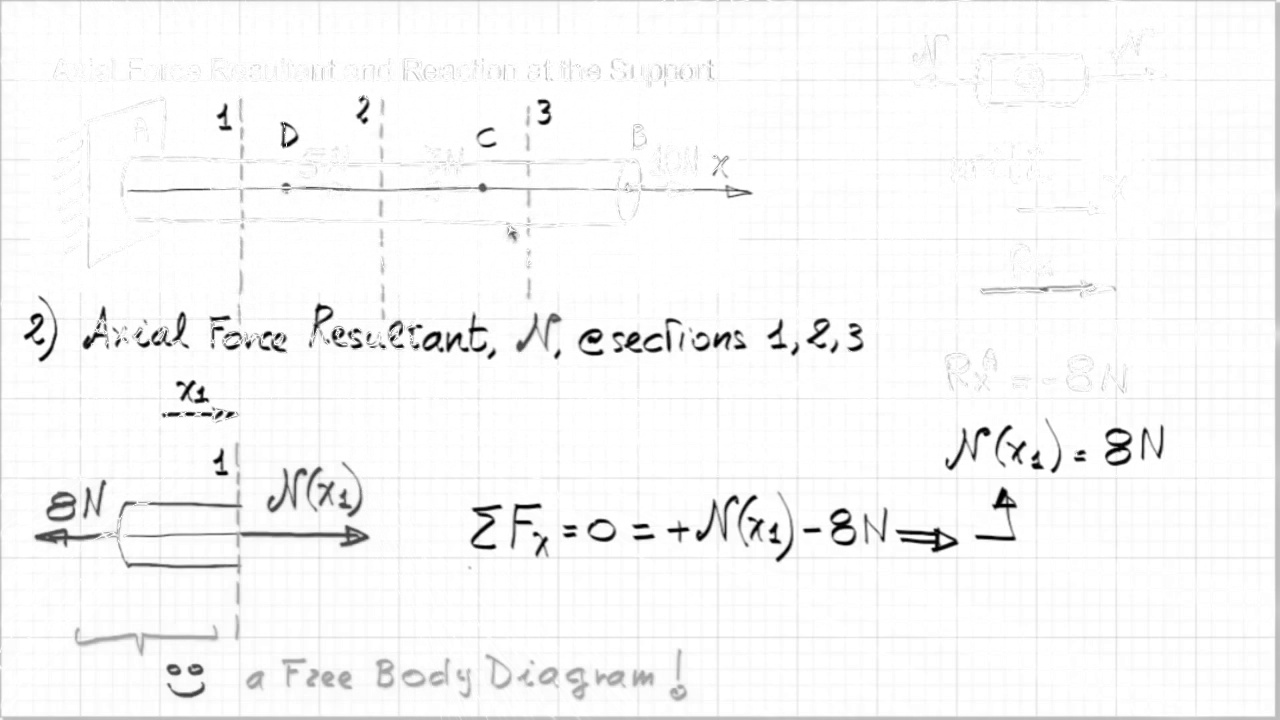 Axial Force Resultant and Reaction at the Support
N N
1 D 2 C 3
A 5N 3N B 10N x
x
2) Axial Force Resultant, N, @sections 1,2,3
Rx^A = -8N
x1
N(x1) = 8N
1
8N N(x1)
ΣFx = 0 = +N(x1) - 8N ⇒
a Free Body Diagram!